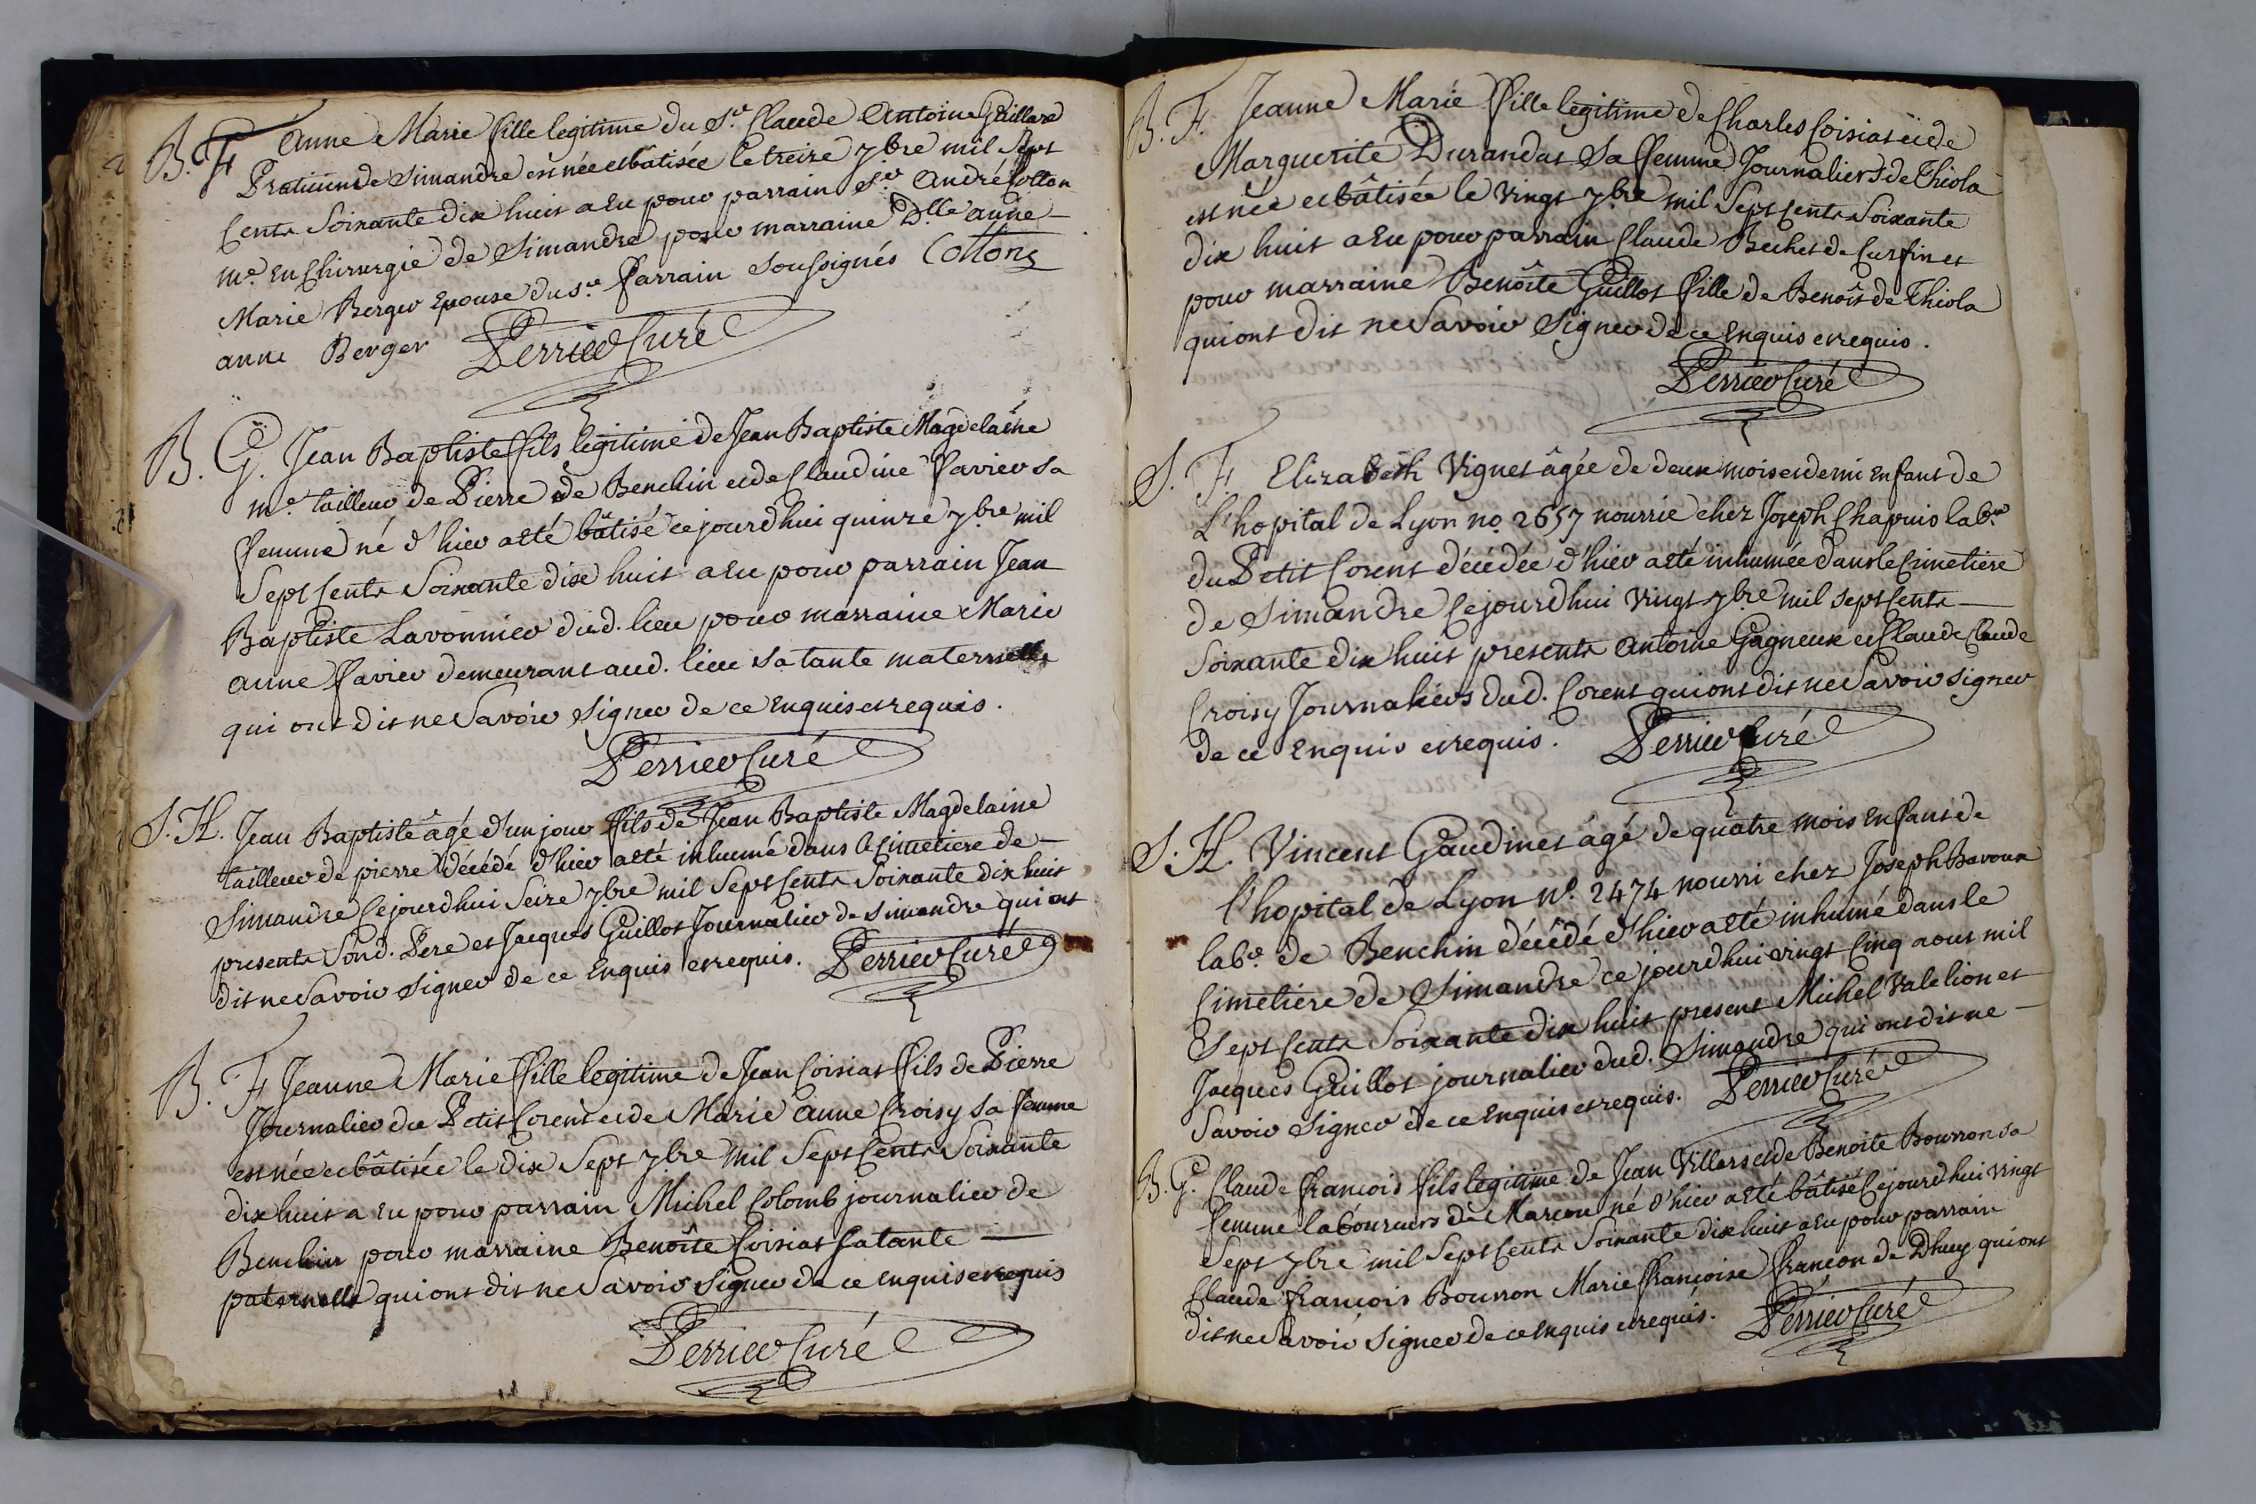 B. F. Anne Marie fille legitime du Sr. Claude Antoine Guillard
Praticien de Simandre est née et bâtisée le treize 7bre mil sept
Cents Soixante dix huit a Eu pour parrain Sr. André Cotton
me. En Chirurgie de Simandre pour marraine Dlle anne
Marie Berger Epouse du sr. Parrain Soussignés Cotton
anne Berger Perrier Curé
B. G. Jean Baptiste fils legitime de Jean Baptiste Magdelaine
me. tailleur de Pierre de Benchin et de Claudine Favier sa
femme né d'hier a Eté bâtisé ce jourd'hui quinze 7bre mil
Sept Cents Soixante dix huit a Eu pour parrain Jean
Baptiste Lavonnier dud. lieu pour marraine Marie
anne Favier demeurant aud. lieu sa tante maternelle
qui ont dit ne Savoir Signer de ce Enquis et requis.
Perrier Curé
S. H. Jean Baptiste âgé d'un jour fils de Jean Baptiste Magdelaine
tailleur de pierre décédé d'hier a Eté inhumé dans le Cimetiere de
Simandre Ce jourd'hui Seize 7bre mil Sept Cents Soixante dix huit
presents Sond. Pere et Jacques Guillot Journalier de Simandre qui ont
dit ne Savoir Signer de ce Enquis et requis. Perrier Curé
B. F. Jeanne Marie fille legitime de Jean Coisiat fils de Pierre
Journalier du Petit Corent et de Marie Anne Croisy sa femme
est née et bâtisée le dix Sept 7bre Mil Sept Cents Soixante
dix huit a Eu pour parrain Michel Colomb journalier de
Benchin pour marraine Benoîte Coisiat sa tante
paternelle qui ont dit ne Savoir Signer de ce Enquis et requis
Perrier Curé
B. F. Jeanne Marie fille legitime de Charles Coisiat et de
Marguerite Durandat Sa femme Journaliers de Thiola
est née et bâtisée le vingt 7bre mil Sept Cents Soixante
dix huit a Eu pour parrain Claude Bechet de Curfin et
pour marraine Benoîte Guillot fille de Benoît de Thiola
qui ont dit ne Savoir Signer de ce Enquis et requis.
Perrier Curé
S. F. Elizabeth Vignet âgée de deux mois et demi Enfant de
L'hopital de Lyon no. 2657 nourrie chez Joseph Chapuis labr.
du Petit Corent décédée d'hier a Eté inhumée dans le Cimetiere
de Simandre Ce jourd'hui vingt 7bre mil Sept Cents
Soixante dix huit presents Antoine Gagneux et Claude Claude
Croisy Journaliers dud. Corent qui ont dit ne Savoir Signer
de ce Enquis et requis. Perrier Curé
S. H. Vincent Gaudinet âgé de quatre mois Enfant de
l'hopital de Lyon no. 2474 nourri chez Joseph Bavoux
labr. de Benchin décédé d'hier a Eté inhumé dans le
Cimetiere de Simandre ce jourd'hui vingt Cinq aout mil
Sept Cents Soixante dix huit present Michel Valelion et
Jacques Guillot journalier dud. Simandre qui ont dit ne
Savoir Signer de ce Enquis et requis. Perrier Curé
B. G. Claude francois fils legitime de Jean Villars et de Benoite Bourron sa
femme laboureurs de Marcou né d'hier a Eté bâtisé Ce jourd'hui vingt
Sept 7bre mil Sept Cents Soixante dix huit a Eu pour parrain
Claude francois Bourron Marie françoise françon de Dhuy qui ont
dit ne Savoir Signer de ce Enquis et requis. Perrier Curé